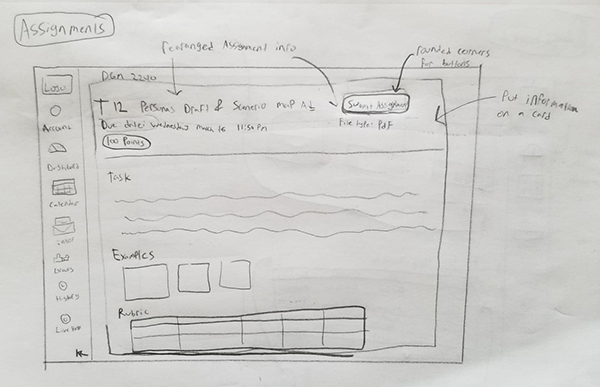 Assignments
rearranged Assignment info
rounded corners
for buttons
Put information
on a card
Logo
Account
Dashboard
Calendar
Inbox
History
DGM 2240
T12 Personas Draft & Scenario map A1
Submit Assignment
Due date: Wednesday March 16 11:59 pm
File type: Pdf
100 Points
Task
Examples
Rubric